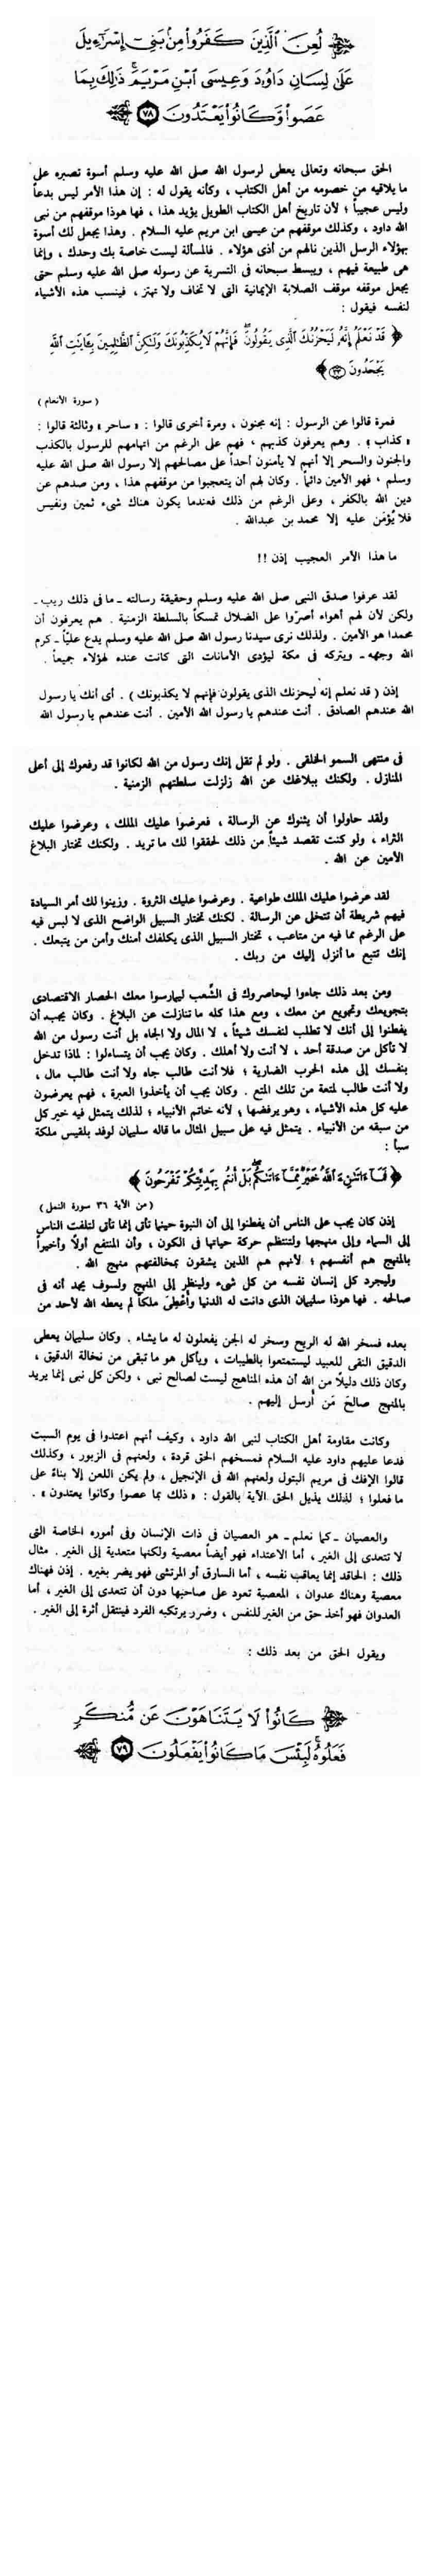 لُعِنَ ٱلَّذِينَ كَفَرُوا۟ مِنۢ بَنِىٓ إِسْرَٰٓءِيلَ
عَلَىٰ لِسَانِ دَاوُۥدَ وَعِيسَى ٱبْنِ مَرْيَمَ ۚ ذَٰلِكَ بِمَا
عَصَوا۟ وَّكَانُوا۟ يَعْتَدُونَ ٧٨
الحق سبحانه وتعالى يعطى لرسول الله صلى الله عليه وسلم أسوة تصبره على
ما يلاقيه من خصومه من أهل الكتاب ، وكأنه يقول له : إن هذا الأمر ليس بدعاً
وليس عجيباً ؛ لأن تاريخ أهل الكتاب الطويل يؤيد هذا ، فها هوذا موقفهم من نبى
الله داود ، وكذلك موقفهم من عيسى ابن مريم عليه السلام . وهذا يجعل لك أسوة
بهؤلاء الرسل الذين نالهم من أذى هؤلاء . فالمسألة ليست خاصة بك وحدك ، وإنما
هى طبيعة فيهم ، ويبسط سبحانه فى التسرية عن رسوله صلى الله عليه وسلم حتى
يجعل موقفه موقف الصلابة الإيمانية التى لا تخاف ولا تهتز ، فينسب هذه الأشياء
لنفسه فيقول :
﴿ قَدْ نَعْلَمُ إِنَّهُۥ لَيَحْزُنُكَ ٱلَّذِى يَقُولُونَ ۖ فَإِنَّهُمْ لَا يُكَذِّبُونَكَ وَلَٰكِنَّ ٱلظَّٰلِمِينَ بِـَٔايَٰتِ ٱللَّهِ
يَجْحَدُونَ ٣٣ ﴾
( سورة الأنعام )
فمرة قالوا عن الرسول : إنه مجنون ، ومرة أخرى قالوا : « ساحر » وثالثة قالوا :
« كذاب » . وهم يعرفون كذبهم ، فهم على الرغم من اتهامهم للرسول بالكذب
والجنون والسحر إلا أنهم لا يأمنون أحداً على مصالحهم إلا رسول الله صلى الله عليه
وسلم ، فهو الأمين دائماً . وكان لهم أن يتعجبوا من موقفهم هذا ، ومن صدهم عن
دين الله بالكفر ، وعلى الرغم من ذلك فعندما يكون هناك شىء ثمين ونفيس
فلا يُؤمَن عليه إلا محمد بن عبدالله .
ما هذا الأمر العجيب إذن !!
لقد عرفوا صدق النبى صلى الله عليه وسلم وحقيقة رسالته ـ ما فى ذلك ريب ـ
ولكن لأن لهم أهواء أصرّوا على الضلال تمسكاً بالسلطة الزمنية . هم يعرفون أن
محمدا هو الأمين . ولذلك نرى سيدنا رسول الله صلى الله عليه وسلم يدع عليّا ـ كرم
الله وجهه ـ ويتركه فى مكة ليؤدى الأمانات التى كانت عنده لهؤلاء جميعاً .
إذن ( قد نعلم إنه ليحزنك الذى يقولون فإنهم لا يكذبونك ) . أى أنك يا رسول
الله عندهم الصادق . أنت عندهم يا رسول الله الأمين . أنت عندهم يا رسول الله
فى منتهى السمو الخلقى . ولو لم تقل إنك رسول من الله لكانوا قد رفعوك إلى أعلى
المنازل . ولكنك ببلاغك عن الله زلزلت سلطتهم الزمنية .
ولقد حاولوا أن يثنوك عن الرسالة ، فعرضوا عليك الملك ، وعرضوا عليك
الثراء ، ولو كنت تقصد شيئاً من ذلك لحققوا لك ما تريد . ولكنك تختار البلاغ
الأمين عن الله .
لقد عرضوا عليك الملك طواعية . وعرضوا عليك الثروة . وزينوا لك أمر السيادة
فيهم شريطة أن تتخلى عن الرسالة . لكنك تختار السبيل الواضح الذى لا لبس فيه
على الرغم مما فيه من متاعب ، تختار السبيل الذى يكلفك أمنك وأمن من يتبعك .
إنك تتبع ما أنزل إليك من ربك .
ومن بعد ذلك جاءوا ليحاصروك فى الشِّعب ليمارسوا معك الحصار الاقتصادى
بتجويعك وتجويع من معك ، ومع هذا كله ما تنازلت عن البلاغ . وكان يجب أن
يفطنوا إلى أنك لا تطلب لنفسك شيئاً ، لا المال ولا الجاه بل أنت رسول من الله
لا تأكل من صدقة أحد ، لا أنت ولا أهلك . وكان يجب أن يتساءلوا : لماذا تدخل
بنفسك إلى هذه الحرب الضارية ؛ فلا أنت طالب جاه ولا أنت طالب مال ،
ولا أنت طالب لمتعة من تلك المتع . وكان يجب أن يأخذوا العبرة ، فهم يعرضون
عليه كل هذه الأشياء ، وهو يرفضها ، لأنه خاتم الأنبياء ؛ لذلك يتمثل فيه خير كل
من سبقه من الأنبياء . يتمثل فيه على سبيل المثال ما قاله سليمان لوفد بلقيس ملكة
سبأ :
﴿ فَمَآ ءَاتَىٰنِۦَ ٱللَّهُ خَيْرٌ مِّمَّآ ءَاتَىٰكُم بَلْ أَنتُم بِهَدِيَّتِكُمْ تَفْرَحُونَ ﴾
( من الآية ٣٦ سورة النمل )
إذن كان يجب على الناس أن يفطنوا إلى أن النبوة حينما تأتى إنما تأتى لتلفت الناس
إلى السماء وإلى منهجها ولتنتظم حركة حياتها فى الكون ، وأن المنتفع أولاً وأخيراً
بالمنهج هم أنفسهم ؛ لأنهم هم الذين يشقون بمخالفتهم منهج الله .
وليجرد كل إنسان نفسه من كل شىء ولينظر إلى المنهج ولسوف يجد أنه فى
صالحه . فها هوذا سليمان الذى دانت له الدنيا وأُعْطِىَ ملكاً لم يعطه الله لأحد من
بعده فسخر الله له الريح وسخر له الجن يفعلون له ما يشاء . وكان سليمان يعطى
الدقيق النقى للعبيد ليستمتعوا بالطيبات ، ويأكل هو ما تبقى من نخالة الدقيق ،
وكان ذلك دليلاً من الله أن هذه المناهج ليست لصالح نبى ، ولكن كل نبى إنما يريد
بالمنهج صالح مَن أُرسل إليهم .
وكانت مقاومة أهل الكتاب لنبى الله داود ، وكيف أنهم اعتدوا فى يوم السبت
فدعا عليهم داود عليه السلام فمسخهم الحق قردة ، ولعنهم فى الزبور ، وكذلك
قالوا الإفك فى مريم البتول ولعنهم الله فى الإنجيل ، ولم يكن اللعن إلا بناءً على
ما فعلوا ؛ لذلك يذيل الحق الآية بالقول : « ذلك بما عصوا وكانوا يعتدون » .
والعصيان ـ كما نعلم ـ هو العصيان فى ذات الإنسان وفى أموره الخاصة التى
لا تتعدى إلى الغير ، أما الاعتداء فهو أيضاً معصية ولكنها متعدية إلى الغير . مثال
ذلك : الحاقد إنما يعاقب نفسه ، أما السارق أو المرتشى فهو يضر بغيره . إذن فهناك
معصية وهناك عدوان ، المعصية تعود على صاحبها دون أن تتعدى إلى الغير ، أما
العدوان فهو أخذ حق من الغير للنفس ، وضرر يرتكبه الفرد فينتقل أثره إلى الغير .
ويقول الحق من بعد ذلك :
كَانُوا۟ لَا يَتَنَاهَوْنَ عَن مُّنكَرٍ
فَعَلُوهُ ۚ لَبِئْسَ مَا كَانُوا۟ يَفْعَلُونَ ٧٩